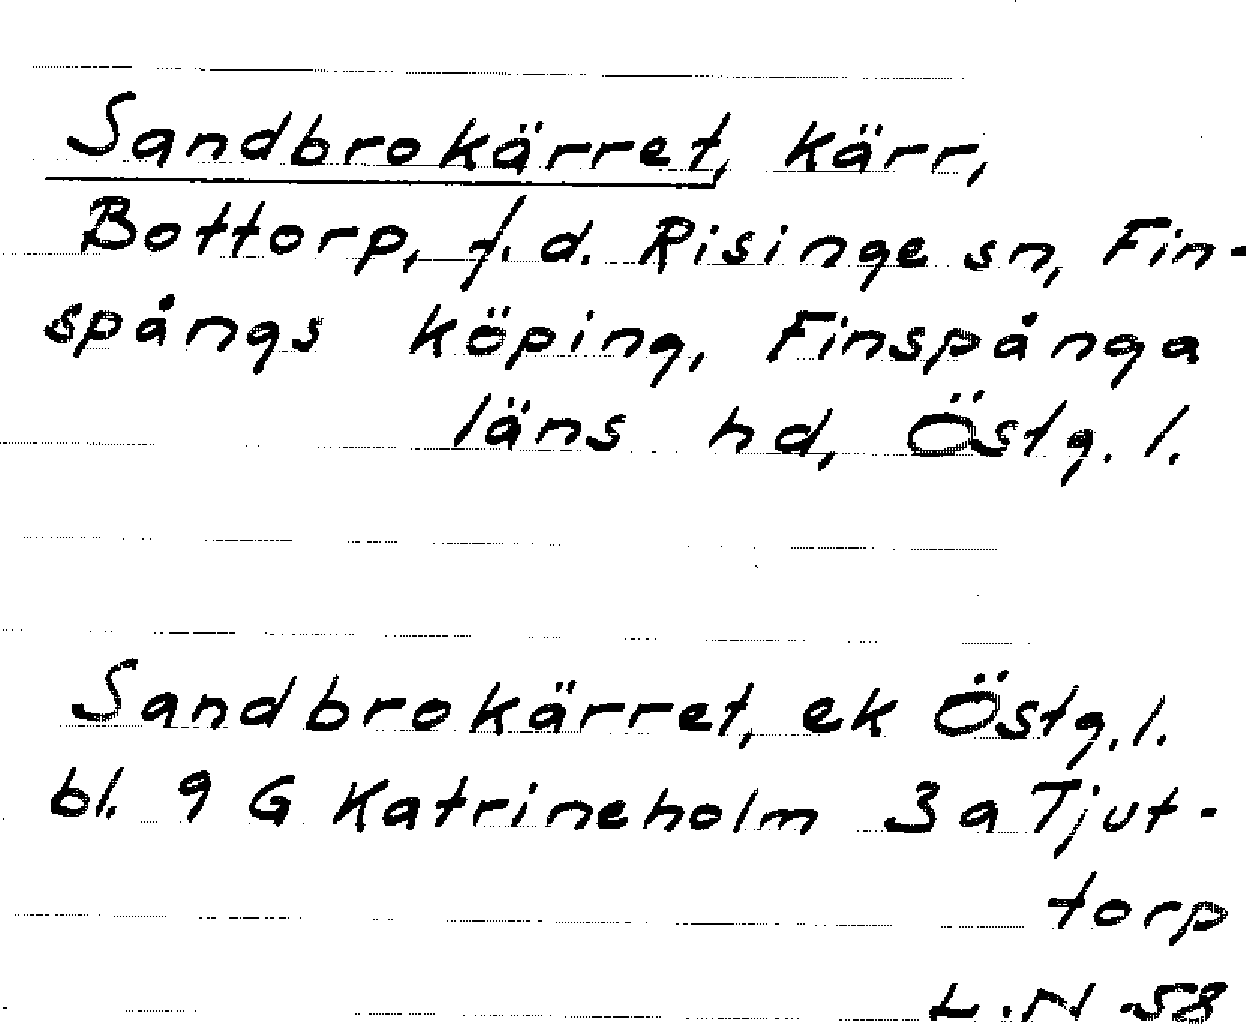 Sandbrokärret, kärr,
Bottorp, f.d. Risinge sn, Fin-
spångs köping, Finspånga
läns hd, Östg. l.
Sandbrokärret, ek Östg. l.
bl. 9 G Katrineholm 3 a Tjut-
torp
L.N 58